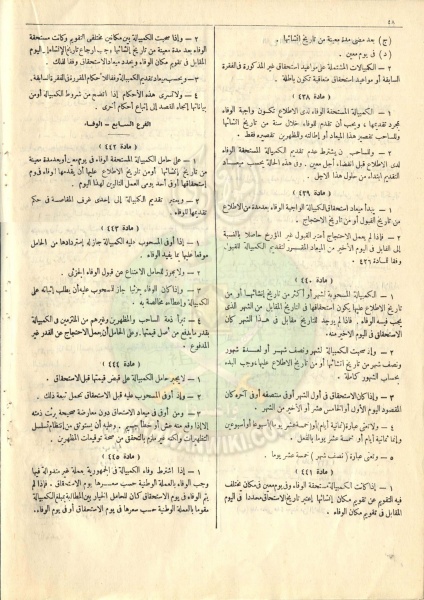 ٤٨
(ج) بعد مضي مدة معينة من تاريخ إنشائها .
(د) في يوم معين .
٢ – الكمبيالات المشتملة على مواعيد استحقاق غير المذكورة في الفقرة
السابقة أو مواعيد استحقاق متعاقبة تكون باطلة .
( مادة ٤٣٨ )
١ – الكمبيالة المستحقة الوفاء لدى الاطلاع تكون واجبة الوفاء
بمجرد تقديمها ، ويجب أن تقدم للوفاء خلال سنة من تاريخ انشائها
وللساحب تقصير هذا الميعاد أو إطالته والمظهرين تقصيره فقط .
٢ – وللساحب أن يشترط عدم تقديم الكمبيالة المستحقة الوفاء
لدى الاطلاع قبل انقضاء أجل معين . وفي هذه الحالة يحسب ميعاد
التقديم ابتداء من حلول هذا الاجل .
( مادة ٤٣٩ )
١ – يبدأ ميعاد استحقاق الكمبيالة الواجبة الوفاء بعد مدة من الاطلاع
من تاريخ القبول أو من تاريخ الاحتجاج .
٢ – فإذا لم يعمل الاحتجاج اعتبر القبول غير المؤرخ حاصلا بالنسبة
إلى القابل في اليوم الأخير من الميعاد المقرر لتقديم الكمبيالة للقبول
وفقا للمادة ٤٢٦ .
( مادة ٤٤٠ )
١ – الكمبيالة المسحوبة لشهر أو أكثر من تاريخ إنشائها أو من
تاريخ الاطلاع عليها يكون استحقاقها في التاريخ المقابل من الشهر الذي
يجب فيه الوفاء . فإذا لم يوجد للتاريخ مقابل في هذا الشهر كان
الاستحقاق في اليوم الاخير منه .
٢ – وإذا سحبت الكمبيالة لشهر ونصف شهر أو لعدة شهور
ونصف شهر من تاريخ إنشائها أو من تاريخ الاطلاع عليها ، وجب البدء
بحساب الشهور كاملة .
٣ – وإذا كان الاستحقاق في أول الشهر أو في منتصفه أو في آخره كان
المقصود اليوم الأول أو الخامس عشر أو الأخير من الشهر .
٤ – ولا تعني عبارة (ثمانية أيام) أو (خمسة عشر يوما) أسبوعا أو أسبوعين
وإنما ثمانية أيام أو خمسة عشر يوما بالفعل .
٥ – وتعني عبارة ( نصف شهر ) خمسة عشر يوما .
( مادة ٤٤١ )
١ – إذا كانت الكمبيالة مستحقة الوفاء في يوم معين وفي مكان يختلف
فيه التقويم عن تقويم مكان إنشائها اعتبر تاريخ الاستحقاق محددا في اليوم
المقابل في تقويم مكان الوفاء .
٢ – وإذا سحبت الكمبيالة بين مكانين مختلفي التقويم وكانت مستحقة
الوفاء بعد مدة من تاريخ إنشائها وجب إرجاع تاريخ الإنشاء إلى اليوم
المقابل في تقويم مكان الوفاء ويحدد ميعاد الاستحقاق وفقا لذلك .
٣ – ويحسب ميعاد تقديم الكمبيالة وفقا لأحكام المقررة في الفقرة السابقة .
٤ – ولا تسري هذه الأحكام إذا اتضح من شروط الكمبيالة أو من
بياناتها إتجاه القصد إلى إتباع أحكام أخرى .
الفرع السابع – الوفاء
( مادة ٤٤٢ )
١ – على حامل الكمبيالة المستحقة الوفاء في يوم معين أو بعد مدة معينة
من تاريخ إنشائها أو من تاريخ الاطلاع عليها أن يقدمها لوفاء في يوم
إستحقاقها أو في أحد يومي العمل التاليين لهذا اليوم .
٢ – ويعتبر تقديم الكمبيالة إلى إحدى غرف المقاصة في حكم
تقديمها للوفاء .
( مادة ٤٤٣ )
١ – إذا أوفى المسحوب عليه الكمبيالة جاز له إستردادها من الحامل
موقعا عليها بما يفيد الوفاء .
٢ – ولا يجوز للحامل الامتناع عن قبول الوفاء الجزئي .
٣ – وإذا كان الوفاء جزئيا جاز للمسحوب عليه أن يطلب إثباته على
الكمبيالة وإعطائه مخالصة به .
٤ – تبرأ ذمة الساحب والمظهرين وغيرهم من الملتزمين في الكمبيالة
بقدر ما يدفع من أصل قيمتها . وعلى الحامل أن يعمل الاحتجاج عن القدر غير
المدفوع .
( مادة ٤٤٤ )
١ – لا يجبر حامل الكمبيالة على قبض قيمتها قبل الاستحقاق .
٢ – وإذ أوفى المسحوب عليه قبل الاستحقاق تحمل تبعة ذلك .
٣ – ومن أوفى في ميعاد الاستحقاق دون معارضة صحيحة برئت ذمته
إلا إذا وقع منه غش أو خطأ جسيم . وعليه أن يستوثق من إنتظام تسلسل
التظهيرات ولكنه غير ملزم بالتحقق من صحة توقيعات المظهرين .
( مادة ٤٤٥ )
١ – إذا اشترط وفاء الكمبيالة في الجمهورية بعملة غير متداولة فيها
وجب الوفاء بالعملة الوطنية حسب سعرها يوم الاستحقاق . فإذا لم
يتم الوفاء في يوم الاستحقاق كان للحامل الخيار بين المطالبة بمبلغ الكمبيالة
مقوما بالعملة الوطنية حسب سعرها في يوم الاستحقاق أو في يوم الوفاء .